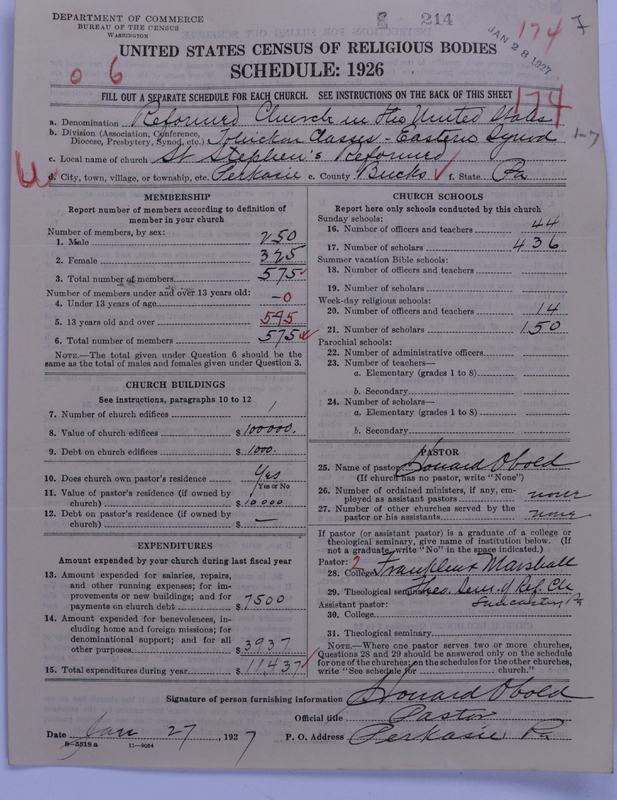 DEPARTMENT OF COMMERCE
BUREAU OF THE CENSUS
WASHINGTON
214
174
JAN 28 1927
UNITED STATES CENSUS OF RELIGIOUS BODIES
SCHEDULE: 1926
0 6
FILL OUT A SEPARATE SCHEDULE FOR EACH CHURCH. SEE INSTRUCTIONS ON THE BACK OF THIS SHEET
174
a. Denomination Reformed Church in the United States
b. Division (Association, Conference, Diocese, Presbytery, Synod, etc.) Tohickon Classis - Eastern Synod
1-7
c. Local name of church St Stephen's Reformed
d. City, town, village, or township, etc. Perkasie e. County Bucks f. State Pa
MEMBERSHIP
Report number of members according to definition of
member in your church
Number of members, by sex:
1. Male 250
2. Female 325
3. Total number of members 575
Number of members under and over 13 years old:
4. Under 13 years of age -0
5. 13 years old and over 575
6. Total number of members 575
NOTE.—The total given under Question 6 should be the
same as the total of males and females given under Question 3.
CHURCH BUILDINGS
See instructions, paragraphs 10 to 12
7. Number of church edifices 1
8. Value of church edifices $ 100000.
9. Debt on church edifices $ 1000.
10. Does church own pastor's residence? Yes
Yes or No
11. Value of pastor's residence (if owned by
church) $ 10000
12. Debt on pastor's residence (if owned by
church) $ —
EXPENDITURES
Amount expended by your church during last fiscal year
13. Amount expended for salaries, repairs,
and other running expenses; for im-
provements or new buildings; and for
payments on church debt $ 7500
14. Amount expended for benevolences, in-
cluding home and foreign missions; for
denominational support; and for all
other purposes $ 3937
15. Total expenditures during year $ 11437
CHURCH SCHOOLS
Report here only schools conducted by this church
Sunday schools:
16. Number of officers and teachers 44
17. Number of scholars 436
Summer vacation Bible schools:
18. Number of officers and teachers
19. Number of scholars
Week-day religious schools:
20. Number of officers and teachers 14
21. Number of scholars 150
Parochial schools:
22. Number of administrative officers
23. Number of teachers—
a. Elementary (grades 1 to 8)
b. Secondary
24. Number of scholars—
a. Elementary (grades 1 to 8)
b. Secondary
PASTOR
25. Name of pastor Howard Obold
(If church has no pastor, write "None")
26. Number of ordained ministers, if any, em-
ployed as assistant pastors none
27. Number of other churches served by the
pastor or his assistants none
If pastor (or assistant pastor) is a graduate of a college or
theological seminary, give name of institution below. (If
not a graduate, write "No" in the space indicated.)
Pastor: 2
28. College Franklin & Marshall
29. Theological seminary Theo. Sem. of Ref. Ch
Assistant pastor: Lancaster, Pa
30. College
31. Theological seminary
NOTE.—Where one pastor serves two or more churches,
Questions 28 and 29 should be answered only on the schedule
for one of the churches; on the schedules for the other churches,
write "See schedule for church."
Signature of person furnishing information Howard Obold
Official title Pastor
Date Jan 27, 1927
P. O. Address Perkasie Pa
8-5518a 11-9064